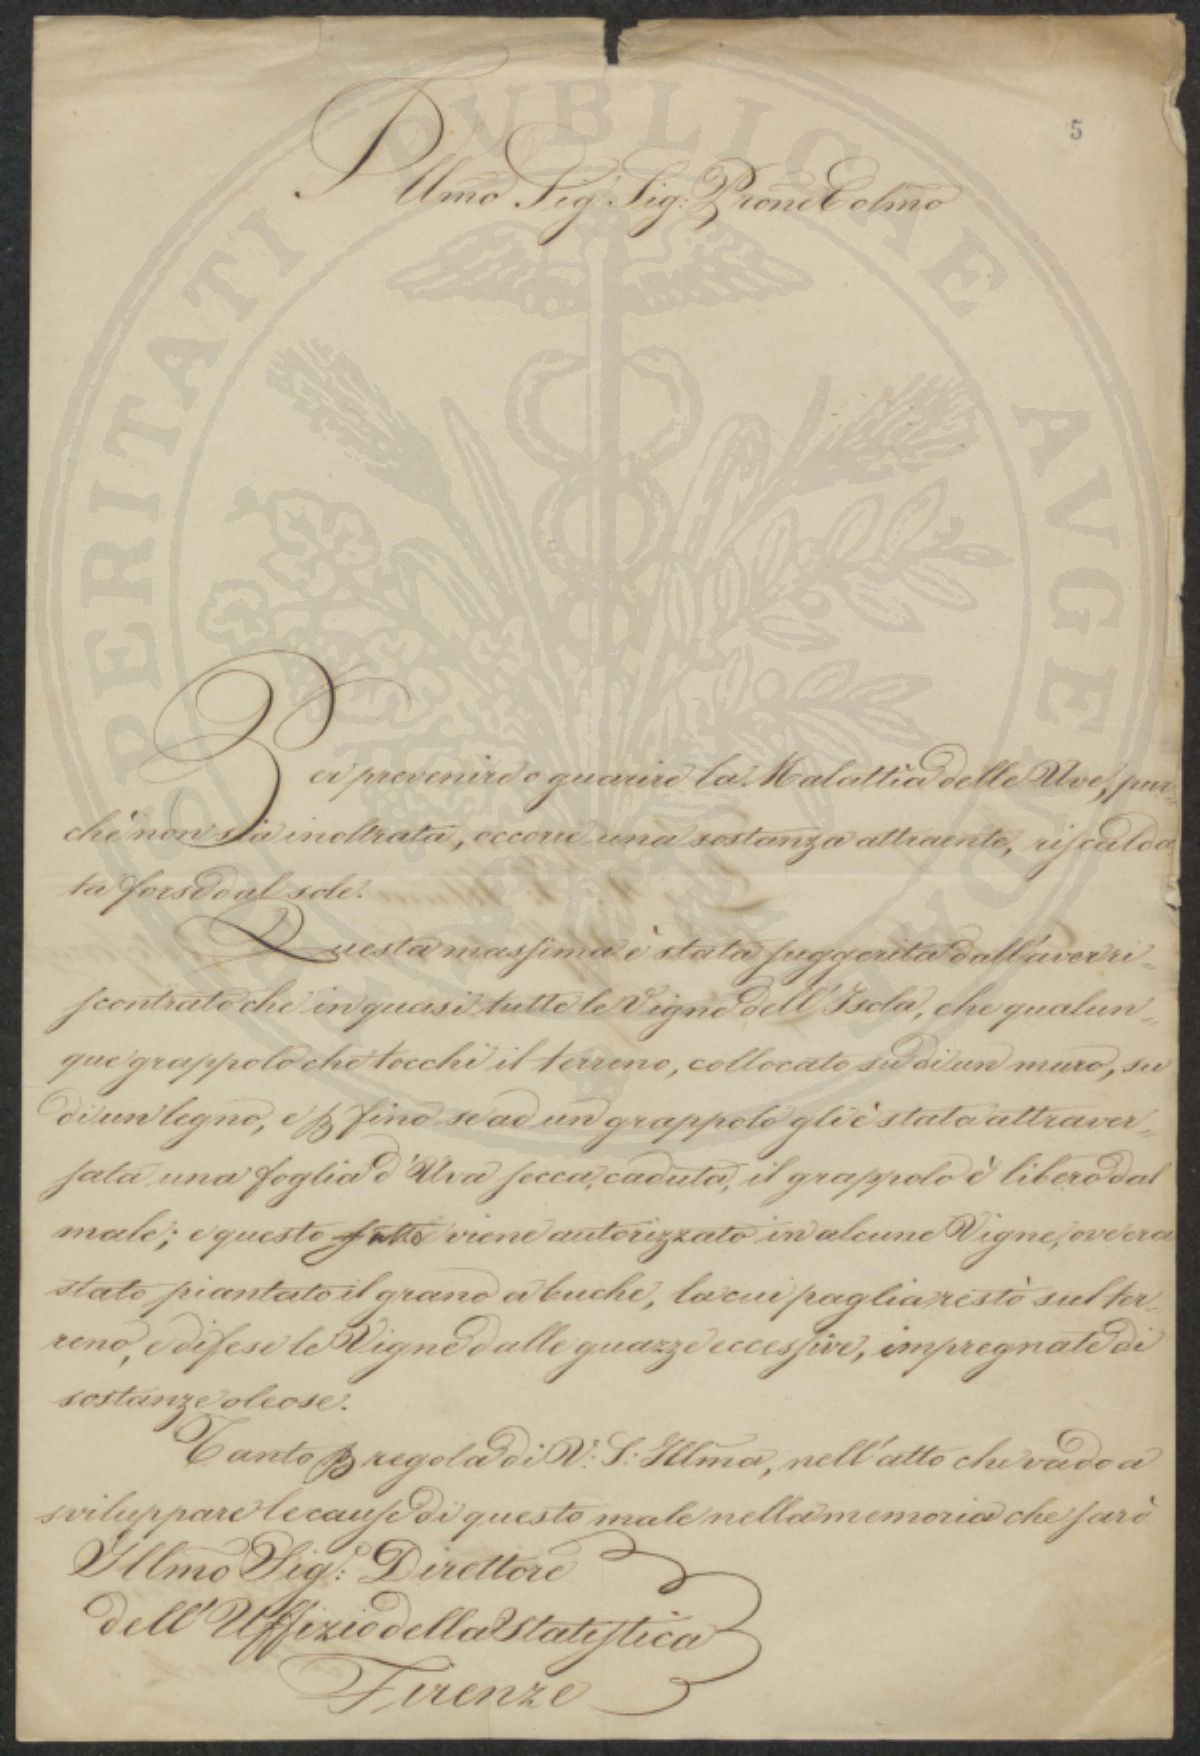 5
Illmo Sig. Sig: Prone Colmo
Per prevenire e guarire la Malattia delle Uve, pur-
chè non sia inoltrata, occorre una sostanza attraente, riscalda
ta forse dal sole.
Questa massima è stata suggerita dall'aver ri-
scontrato che in quasi tutte le Vigne dell'Isola, che qualun-
que grappolo che tocchi il terreno, collocato su di un muro, su
di un legno, e p fino se ad un grappolo gli è stata attraver-
sata una foglia d'Uva secca, caduta, il grappolo è libero dal
male; e questo fatto viene autorizzato in alcune Vigne, ove era
stato piantato il grano a buche, la cui paglia restò sul ter-
reno, e difese le Vigne dalle guazze eccessive, impregnate di
sostanze oleose.
Tanto p regola di V: S: Illma, nell'atto che vado a
sviluppare le cause di questo male nella memoria che sarò
Illmo Sig: Direttore
dell'Uffizio della Statistica
Firenze
PROSPERITATI PUBLICAE AVGENDAE